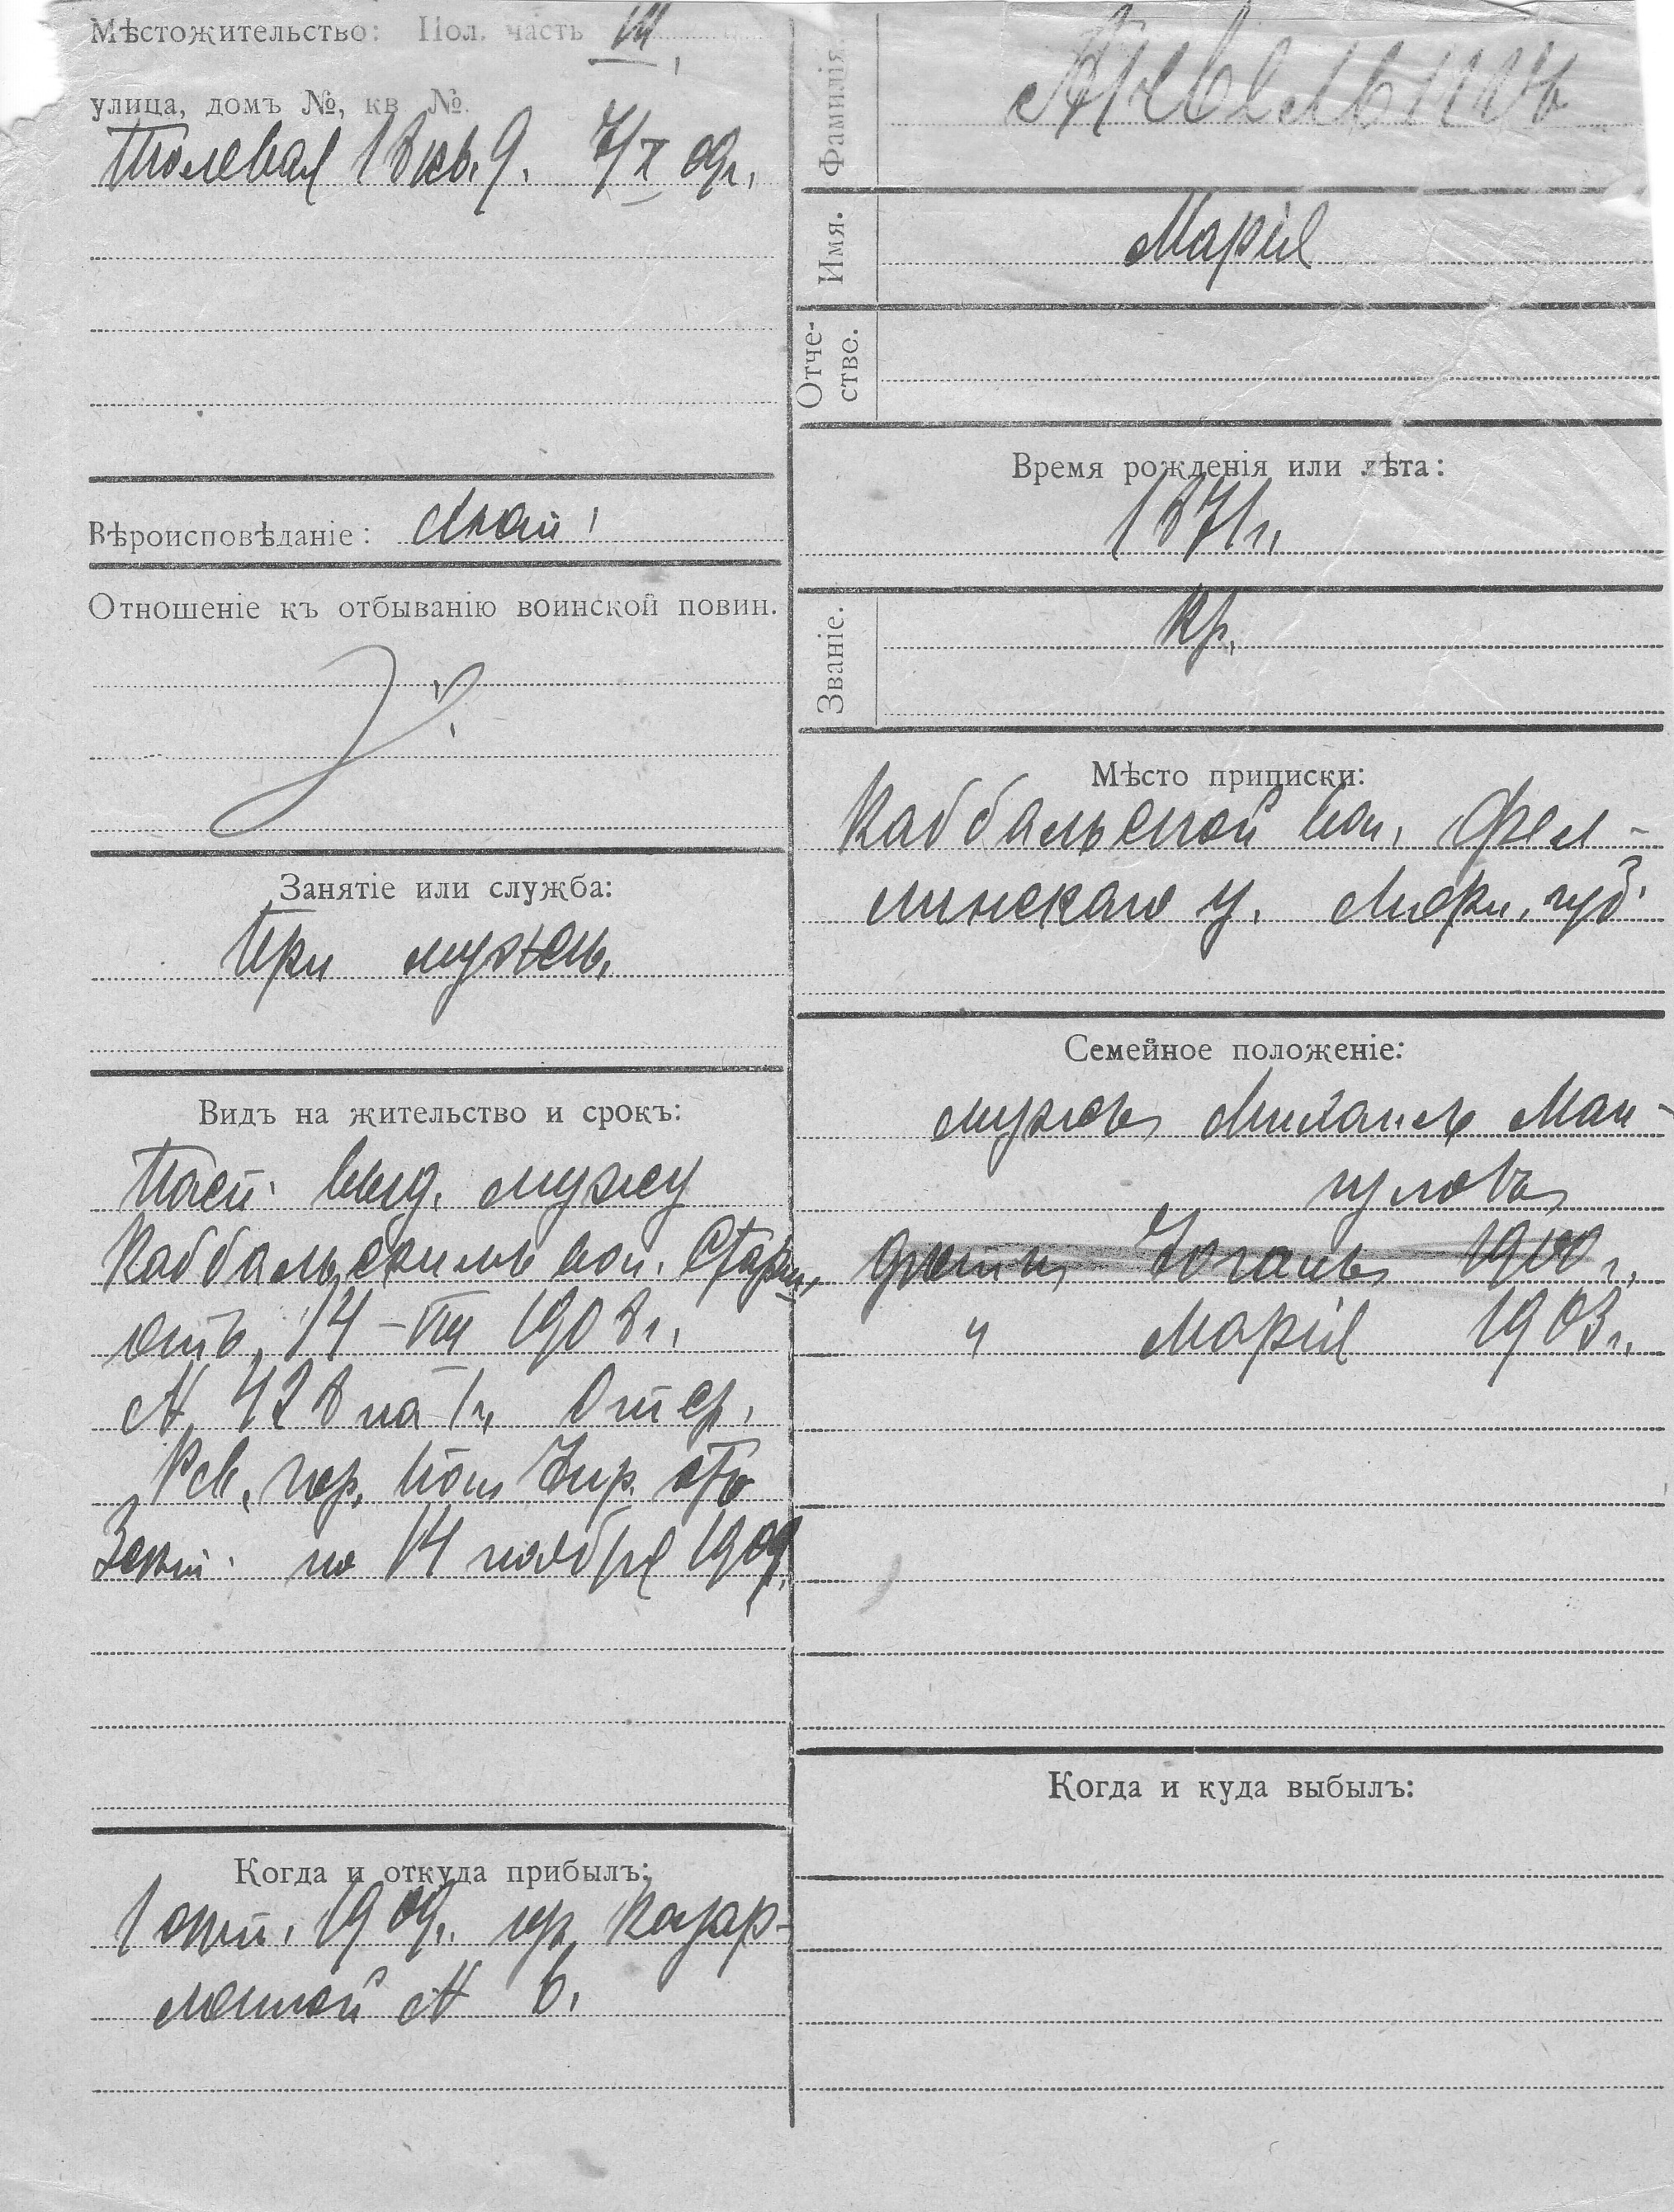 Мѣстожительство: Пол. часть III,
улица, домъ №, кв. №.
Полевая 18 кв. 9. 7/X 09г.
Вѣроисповѣданіе:
Отношеніе къ отбыванію воинской повин.
Занятіе или служба:
При мужѣ
Видъ на жительство и срокъ:
Пасп. выд. мужу
Каббальскимъ вол. Старш.
отъ 14-VIII 1908 г.
№ 428 на 1 г. Отср.
Рев. гор. Пол. Упр. отъ
по 14 ноября 1909
Когда и откуда прибылъ:
1 окт. 1909. гор. Казар-
менной № 6.
Фамилія.
Имя.
Марія
Отче-
ство.
Время рожденія или лѣта:
1871 г.
Званіе.
Кр.
Мѣсто приписки:
Каббальской вол. Фел-
линскаго у. Лифл. губ.
Семейное положеніе:
мужъ Михаилъ Ман-
гуловъ
дѣти Іоганъ 1900 г.
" Марія 1903 г.
Когда и куда выбылъ: